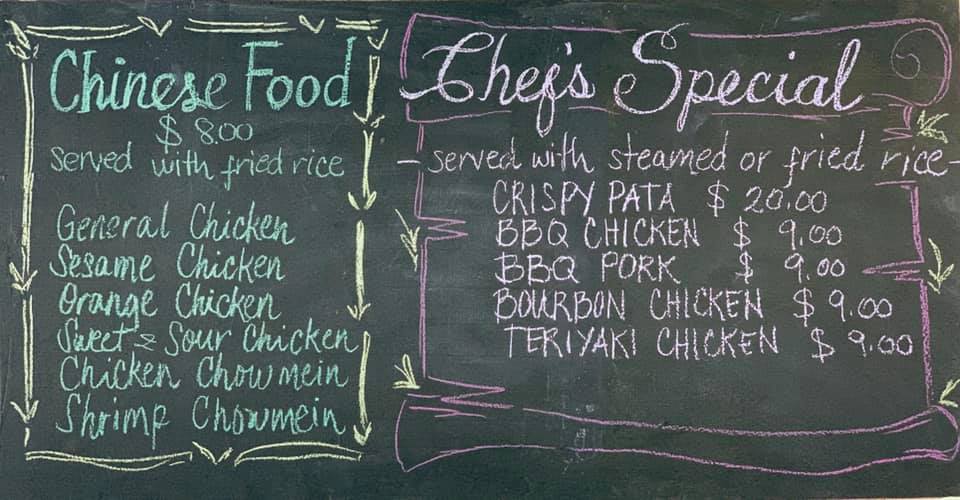 Chinese Food
$ 8.00
served with fried rice
General Chicken
Sesame Chicken
Orange Chicken
Sweet & Sour Chicken
Chicken Chowmein
Shrimp Chowmein
Chef's Special
- served with steamed or fried rice -
CRISPY PATA $ 20.00
BBQ CHICKEN $ 9.00
BBQ PORK $ 9.00
BOURBON CHICKEN $ 9.00
TERIYAKI CHICKEN $ 9.00